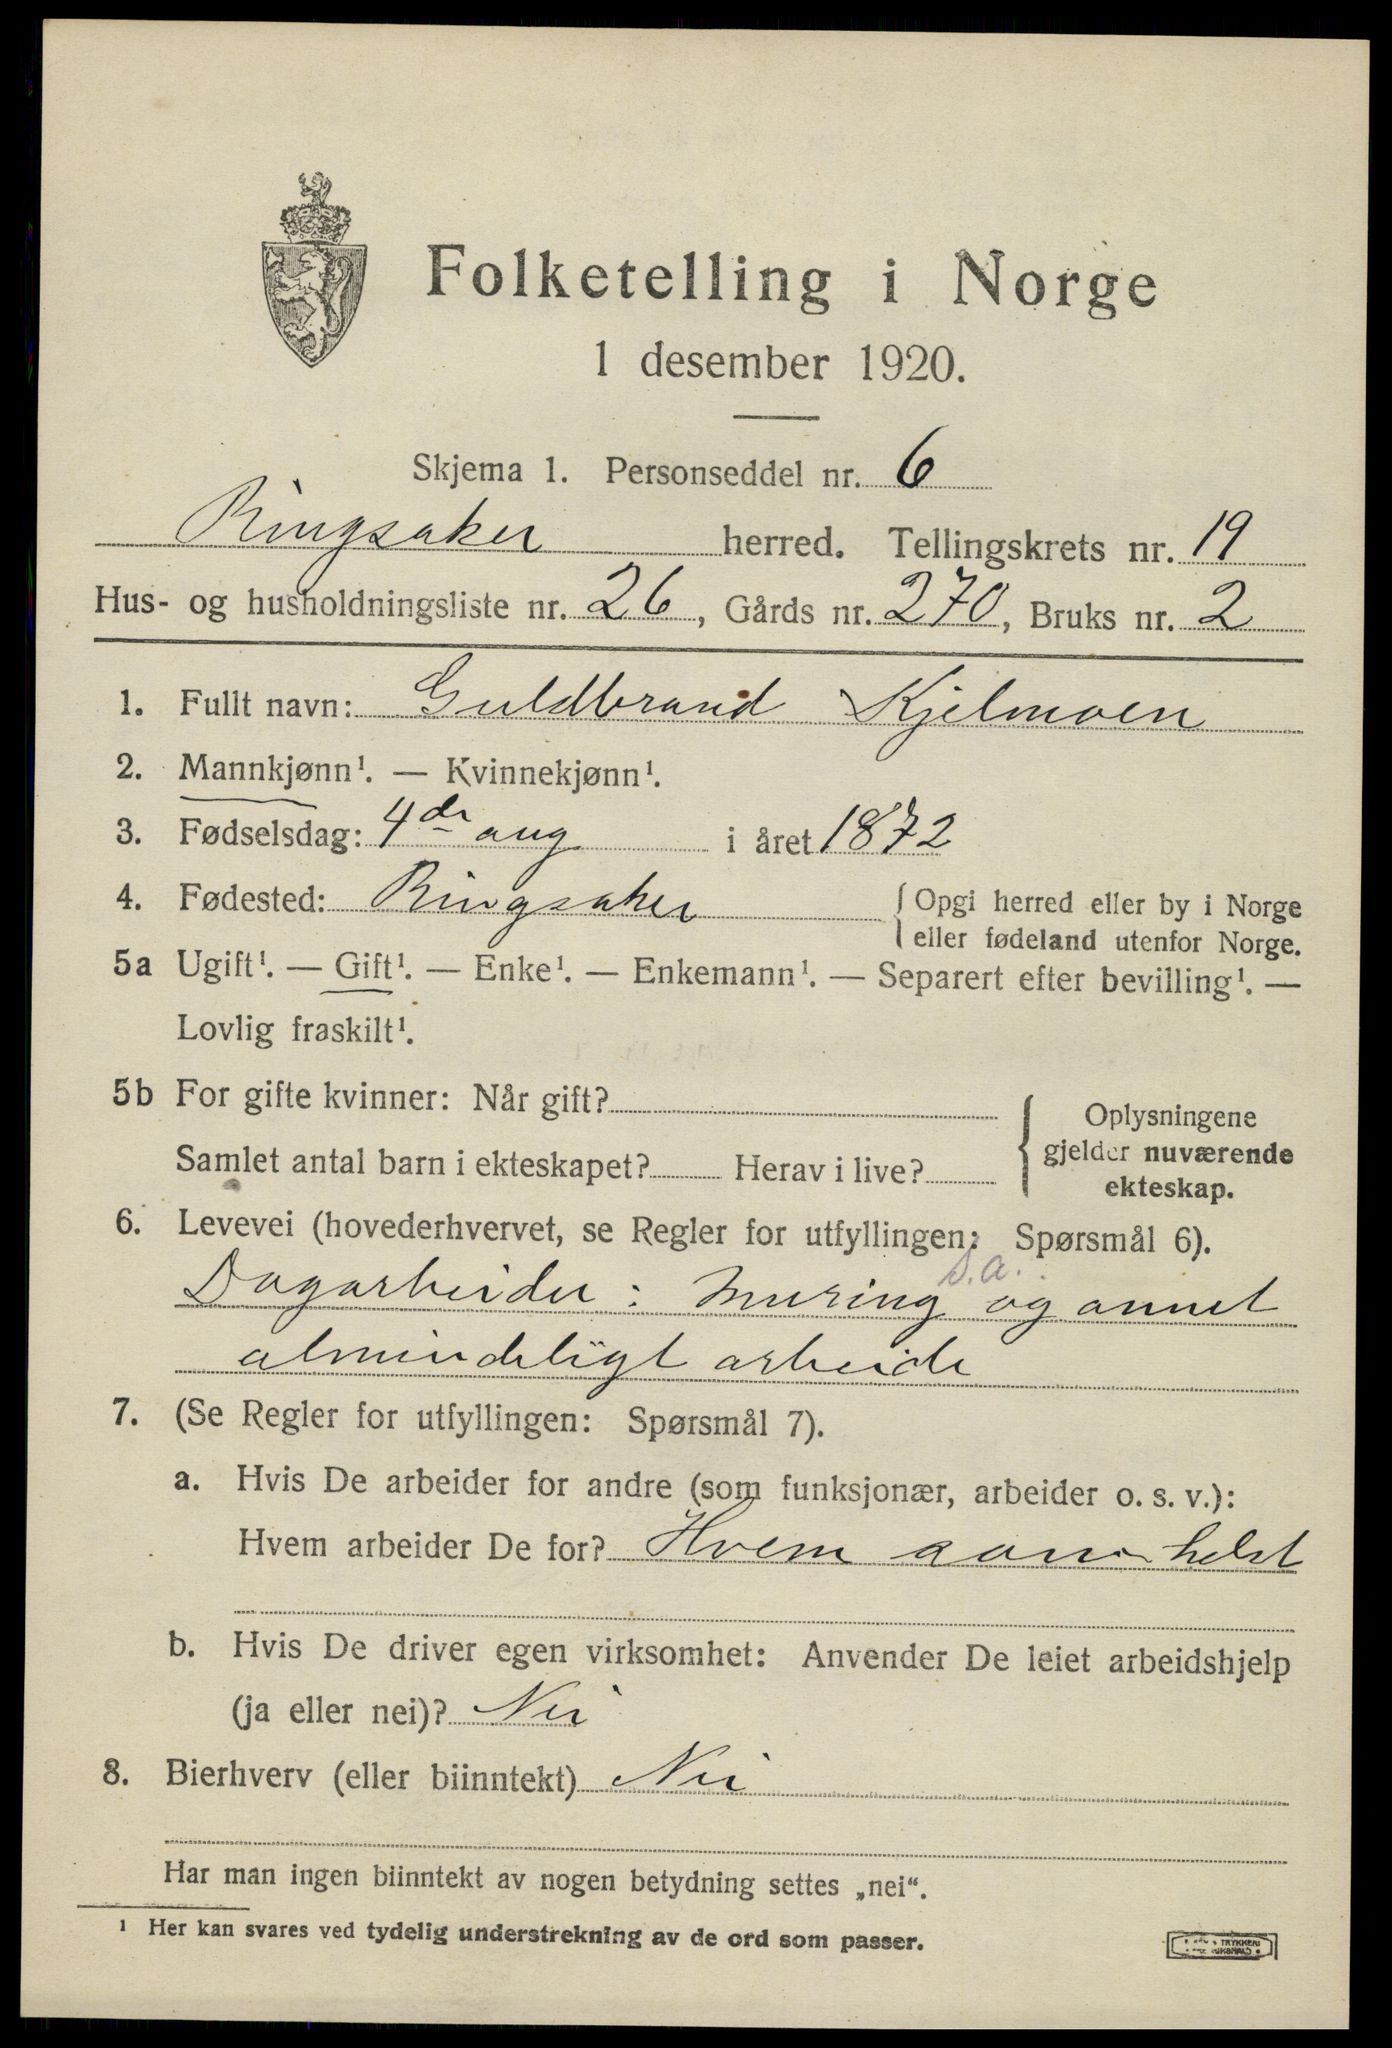 Folketelling i Norge
1 desember 1920.
Skjema 1. Personseddel nr. 6
Ringsaker herred. Tellingskrets nr. 19
Hus- og husholdningsliste nr. 26, Gårds nr. 270, Bruks nr. 2
1. Fullt navn: Guldbrand Kjelmoen
2. Mannkjønn¹. — Kvinnekjønn¹.
3. Fødselsdag: 4de aug i året 1872
4. Fødested: Ringsaker { Opgi herred eller by i Norge
eller fødeland utenfor Norge.
5a Ugift¹. — Gift¹. — Enke¹. — Enkemann¹. — Separert efter bevilling¹. —
Lovlig fraskilt¹.
5b For gifte kvinner: Når gift?
Samlet antal barn i ekteskapet? Herav i live?
{ Oplysningene
gjelder nuværende
ekteskap.
6. Levevei (hovederhvervet, se Regler for utfyllingen: Spørsmål 6).
D.a.
Dagarbeider: Muring og annet
almindeligt arbeide
7. (Se Regler for utfyllingen: Spørsmål 7).
a. Hvis De arbeider for andre (som funksjonær, arbeider o. s. v.):
Hvem arbeider De for? Hvem som helst
b. Hvis De driver egen virksomhet: Anvender De leiet arbeidshjelp
(ja eller nei)? Nei
8. Bierhverv (eller biinntekt) Nei
Har man ingen biinntekt av nogen betydning settes „nei“.
¹ Her kan svares ved tydelig understrekning av de ord som passer.